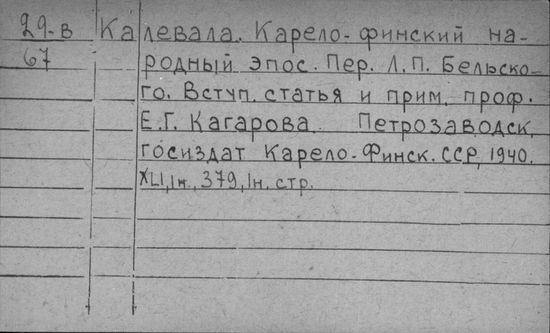 29-в Калевала. Карело-финский на-
67 родный эпос. Пер. Л.П. Бельско-
го. Вступ. статья и прим. проф.
Е.Г. Кагарова. Петрозаводск,
госиздат Карело-Финск. ССР, 1940.
XLI, 1н., 379, 1н. стр.